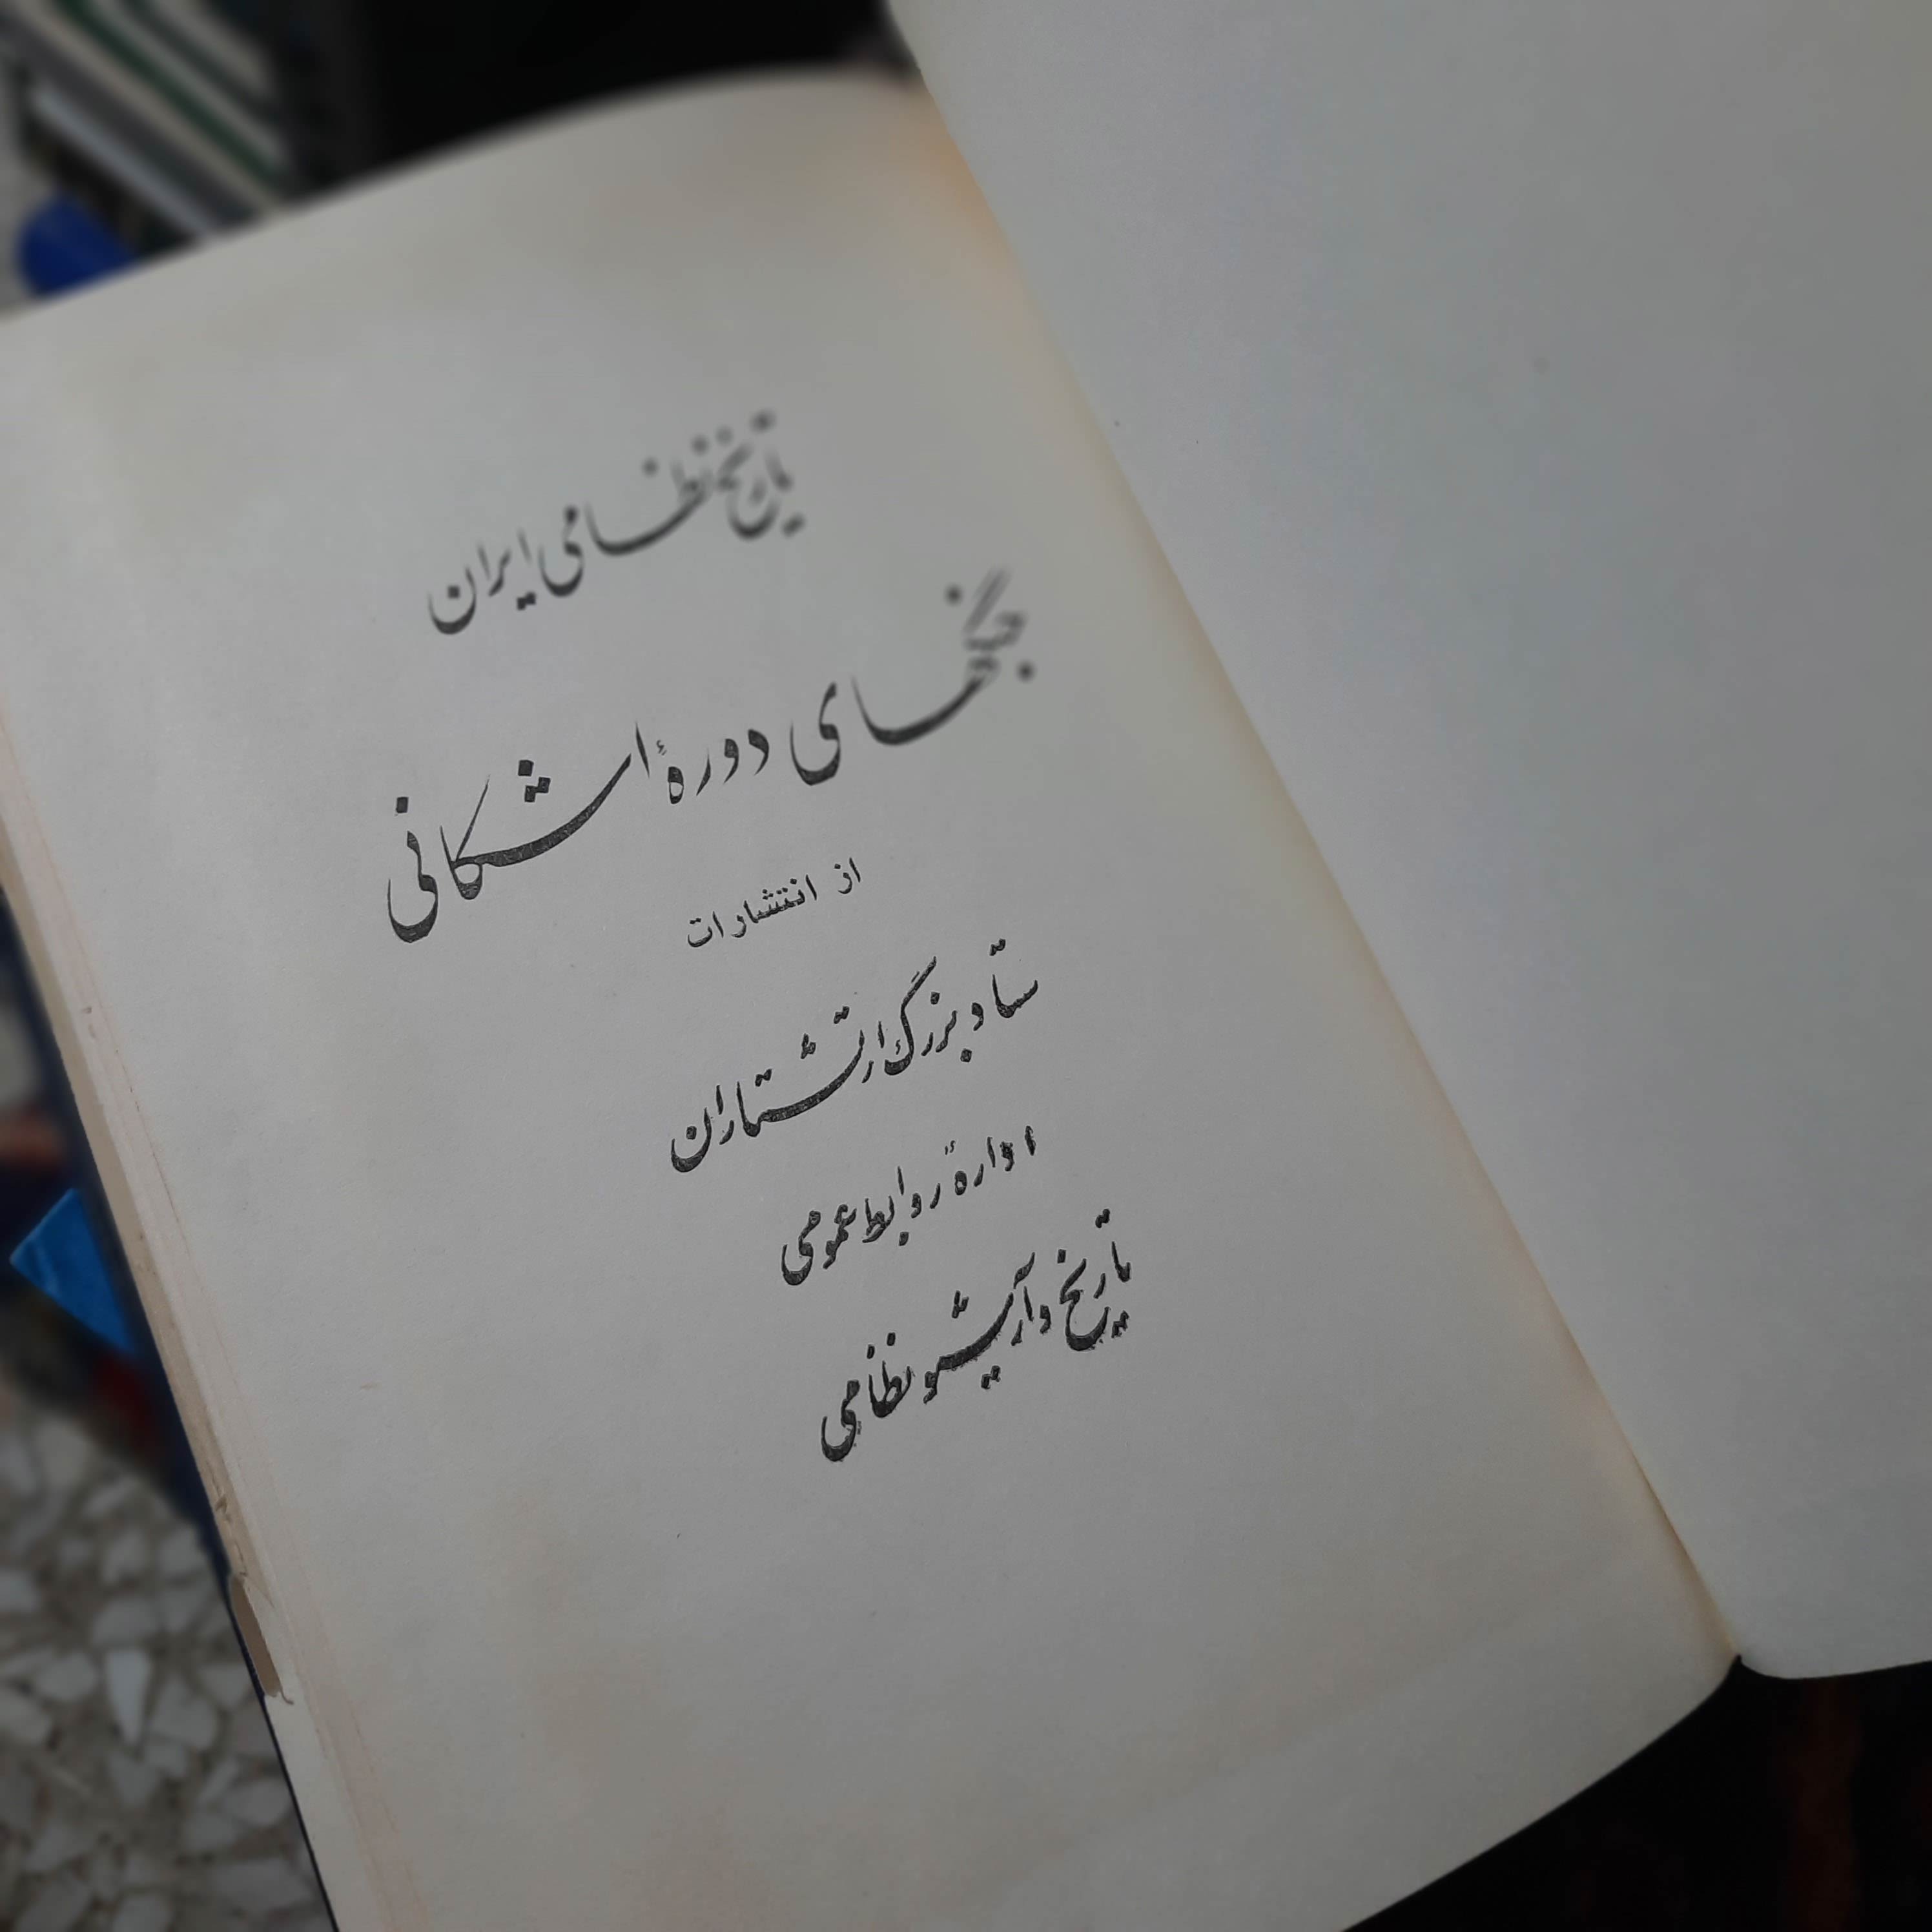 تاریخ نظامی ایران
جنگهای دورهٔ اشکانی
از انتشارات
ستاد بزرگ ارتشتاران
ادارهٔ روابط عمومی
تاریخ و آرشیو نظامی